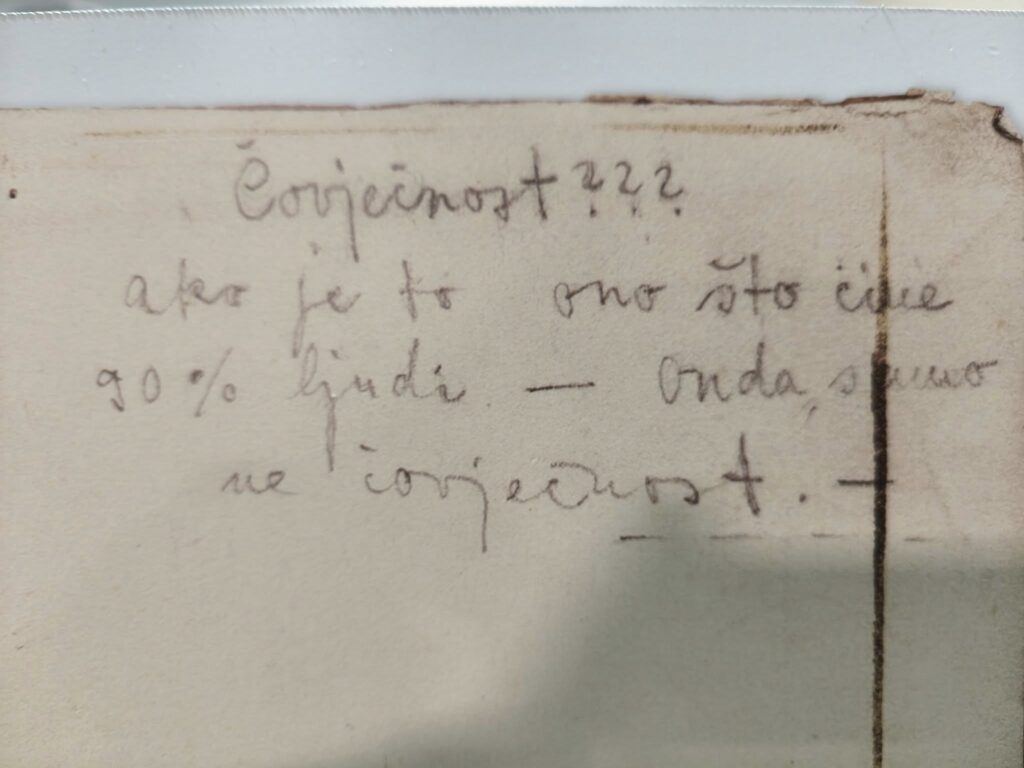 Čovječnost???
ako je to ono što čine
90% ljudi — onda, samo
ne čovječnost. —